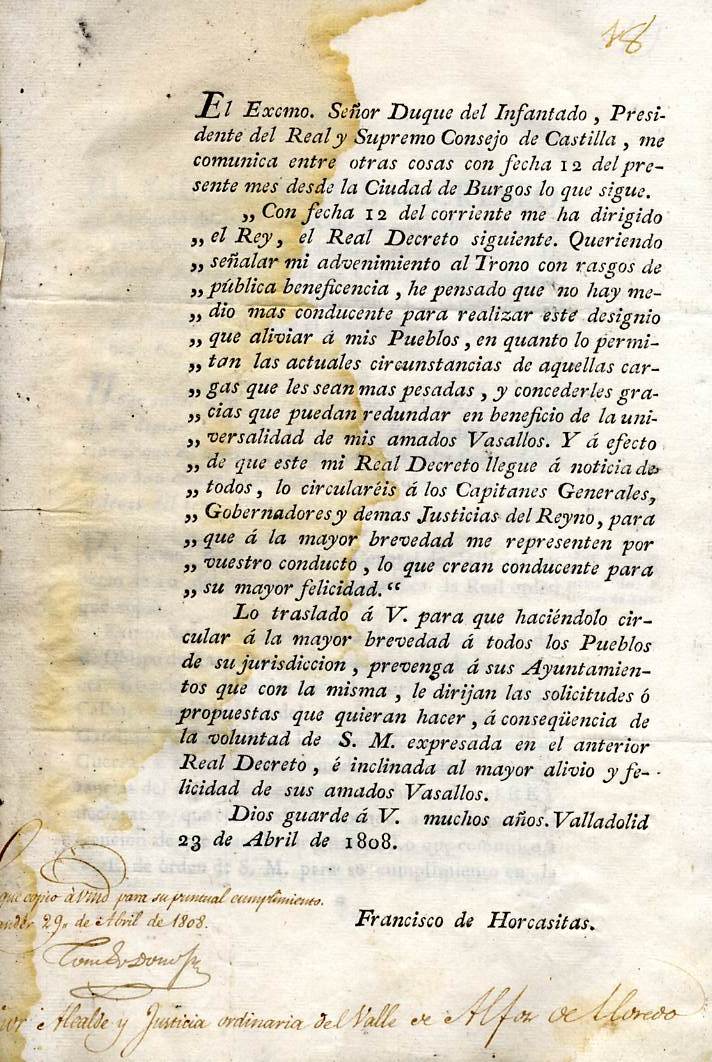 18
El Excmo. Señor Duque del Infantado, Presi-
dente del Real y Supremo Consejo de Castilla, me
comunica entre otras cosas con fecha 12 del pre-
sente mes desde la Ciudad de Burgos lo que sigue.
„Con fecha 12 del corriente me ha dirigido
„el Rey, el Real Decreto siguiente. Queriendo
„señalar mi advenimiento al Trono con rasgos de
„pública beneficencia, he pensado que no hay me-
„dio mas conducente para realizar este designio
„que aliviar á mis Pueblos, en quanto lo permi-
„tan las actuales circunstancias de aquellas car-
„gas que les sean mas pesadas, y concederles gra-
„cias que puedan redundar en beneficio de la uni-
„versalidad de mis amados Vasallos. Y á efecto
„de que este mi Real Decreto llegue á noticia de
„todos, lo circularéis á los Capitanes Generales,
„Gobernadores y demas Justicias del Reyno, para
„que á la mayor brevedad me representen por
„vuestro conducto, lo que crean conducente para
„su mayor felicidad.“
Lo traslado á V. para que haciéndolo cir-
cular á la mayor brevedad á todos los Pueblos
de su jurisdiccion, prevenga á sus Ayuntamien-
tos que con la misma, le dirijan las solicitudes ó
propuestas que quieran hacer, á conseqüencia de
la voluntad de S. M. expresada en el anterior
Real Decreto, é inclinada al mayor alivio y fe-
licidad de sus amados Vasallos.
Dios guarde á V. muchos años. Valladolid
23 de Abril de 1808.
que copio à Vmd para su puntual cumplimiento.
29,, de Abril de 1808.
Francisco de Horcasitas.
Alcalde y Justicia ordinaria del Valle de Alfoz de Lloredo